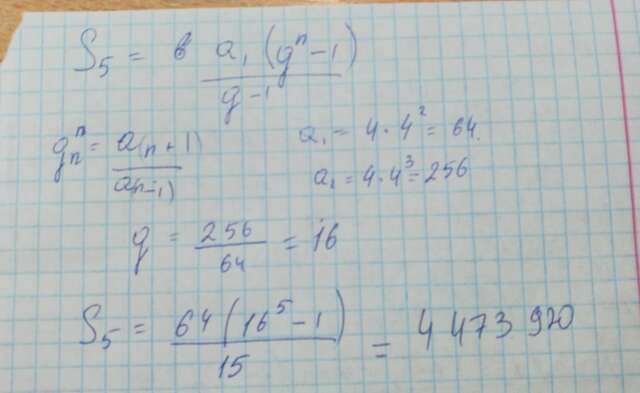 S₅ = (a₁ (gⁿ - 1)) / (g - 1)
gₙⁿ = a(n + 1) / a(n-1)
a₁ = 4 · 4² = 64.
a₂ = 4 · 4³ = 256
g = 256 / 64 = 16
S₅ = 64 (16⁵ - 1) / 15 = 4 473 920